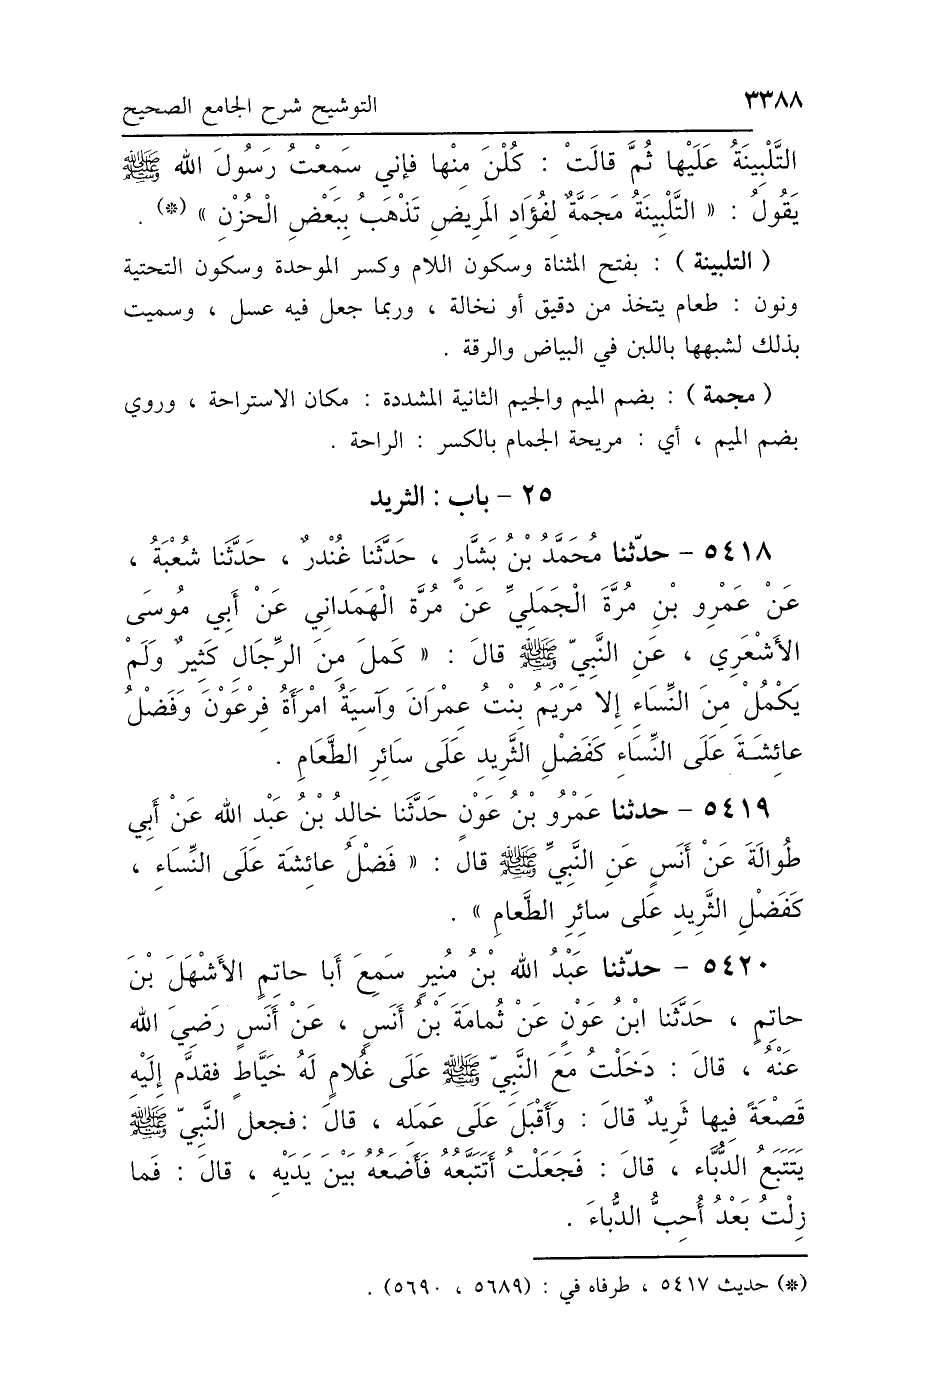 ٣٣٨٨ التوشيح شرح الجامع الصحيح
التَّلْبِينَةُ عَلَيْها ثُمَّ قالَتْ : كُلْنَ مِنْها فإني سَمِعْتُ رَسُولَ الله ﷺ
يَقُولُ : « التَّلْبِينَةُ مَجَمَّةٌ لِفُؤَادِ المَرِيضِ تَذْهَبُ بِبَعْضِ الْحُزْنِ » (*) .
( التلبينة ) : بفتح المثناة وسكون اللام وكسر الموحدة وسكون التحتية
ونون : طعام يتخذ من دقيق أو نخالة ، وربما جعل فيه عسل ، وسميت
بذلك لشبهها باللبن في البياض والرقة .
( مجمة ) : بضم الميم والجيم الثانية المشددة : مكان الاستراحة ، وروي
بضم الميم ، أي : مريحة الجمام بالكسر : الراحة .
٢٥ - باب : الثريد
٥٤١٨ - حدّثنا مُحَمَّدُ بْنُ بَشَّارٍ ، حَدَّثَنا غُنْدرٌ ، حَدَّثَنا شُعْبَةُ ،
عَنْ عَمْرِو بْنِ مُرَّةَ الْجَمَلِيِّ عَنْ مُرَّةَ الْهَمَدَاني عَنْ أَبي مُوسَى
الأَشْعَرِي ، عَنِ النَّبِيّ ﷺ قالَ : « كَملَ مِنَ الرِّجَالِ كَثِيرٌ وَلَمْ
يَكْمُلْ مِنَ النِّسَاءِ إلا مَرْيَمُ بِنْتُ عِمْرَانَ وَآسِيَةُ امْرَأَةُ فِرْعَوْنَ وَفَضْلُ
عائِشَةَ عَلَى النِّسَاءِ كَفَضْلِ الثَّرِيدِ عَلَى سَائِرِ الطَّعَامِ .
٥٤١٩ - حدثنا عَمْرُو بْنُ عَوْنٍ حَدَّثَنا خالِدُ بْنُ عَبْدِ الله عَنْ أَبي
طُوالَةَ عَنْ أَنَسٍ عَنِ النَّبِيِّ ﷺ قالَ : « فَضْلُ عائِشَة عَلَى النِّسَاءِ ،
كَفَضْلِ الثَّرِيدِ عَلى سائِرِ الطَّعامِ » .
٥٤٢٠ - حدّثنا عَبْدُ الله بْنُ مُنِيرٍ سَمِعَ أَبا حاتِمٍ الأَشْهَلَ بْنَ
حاتِمٍ ، حَدَّثَنا ابْنُ عَوْنٍ عَنْ ثُمامَةَ بْنُ أَنَسٍ ، عَنْ أَنَسٍ رَضِيَ الله
عَنْهُ ، قالَ : دَخَلْتُ مَعَ النَّبِيّ ﷺ عَلَى غُلامٍ لَهُ خَيَّاطٍ فقدَّم إِلَيْهِ
قَصْعَةً فِيها ثَرِيدٌ قالَ : وَأَقْبَلَ عَلَى عَمَلِه ، قالَ : فجعل النَّبِيّ ﷺ
يَتَتَبَعُ الدُّبَّاء ، قالَ : فَجَعَلْتُ أَتَتَبَّعُهُ فَأَضَعُهُ بَيْنَ يَدَيْهِ ، قالَ : فَما
زِلْتُ بَعْدُ أُحِبُّ الدُّباءَ .
(*) حديث ٥٤١٧ ، طرفاه في : (٥٦٨٩ ، ٥٦٩٠) .